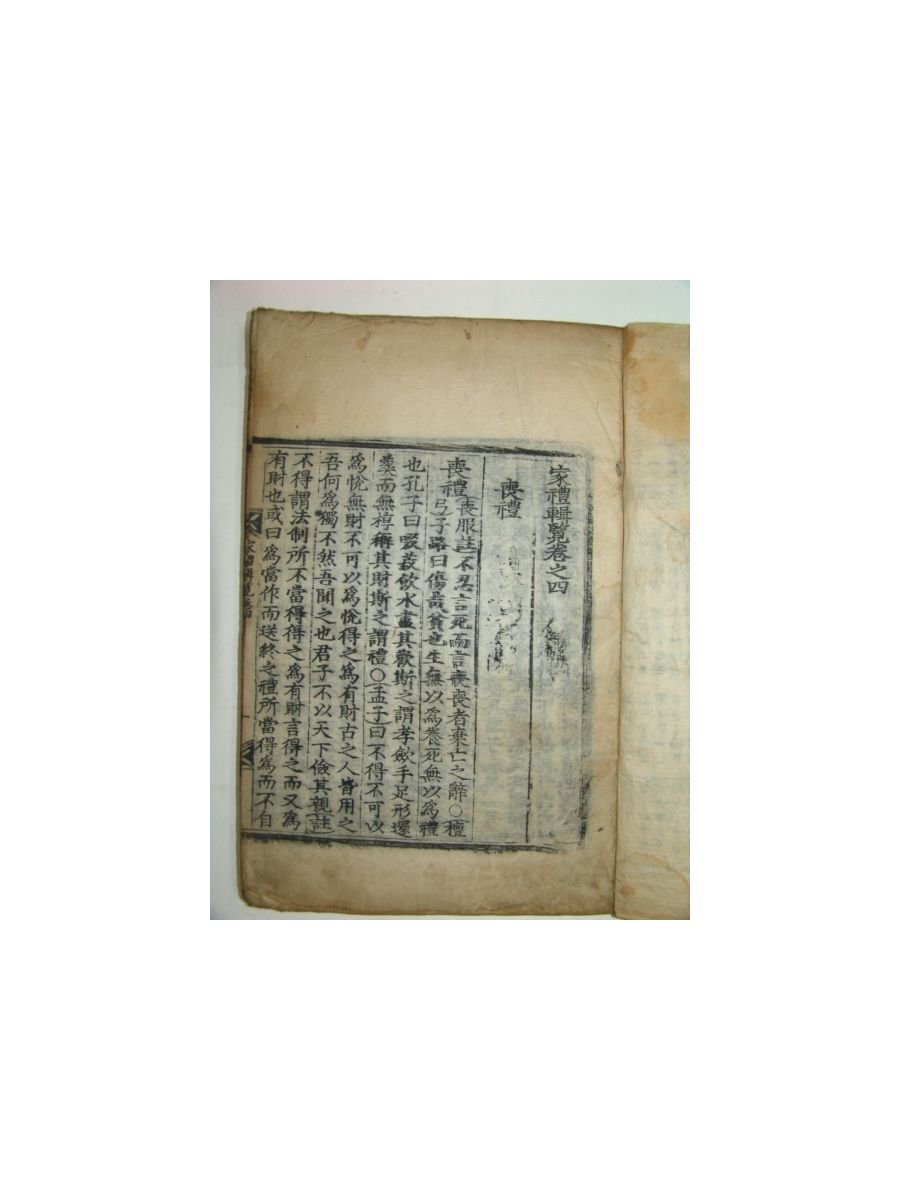 家禮輯覽卷之四
喪禮
喪禮 喪服註不忍言死而言喪喪者棄亡之辭○檀
弓子路曰傷哉貧也生無以爲養死無以爲禮
也孔子曰啜菽飮水盡其歡斯之謂孝歛手足形還
葬而無椁稱其財斯之謂禮○孟子曰不得不可以
爲悅無財不可以爲悅得之爲有財古之人皆用之
吾何爲獨不然吾聞之也君子不以天下儉其親註
不得謂法制所不當得得之爲有財言得之而又爲
有財也或曰爲當作而送終之禮所當得爲而不自